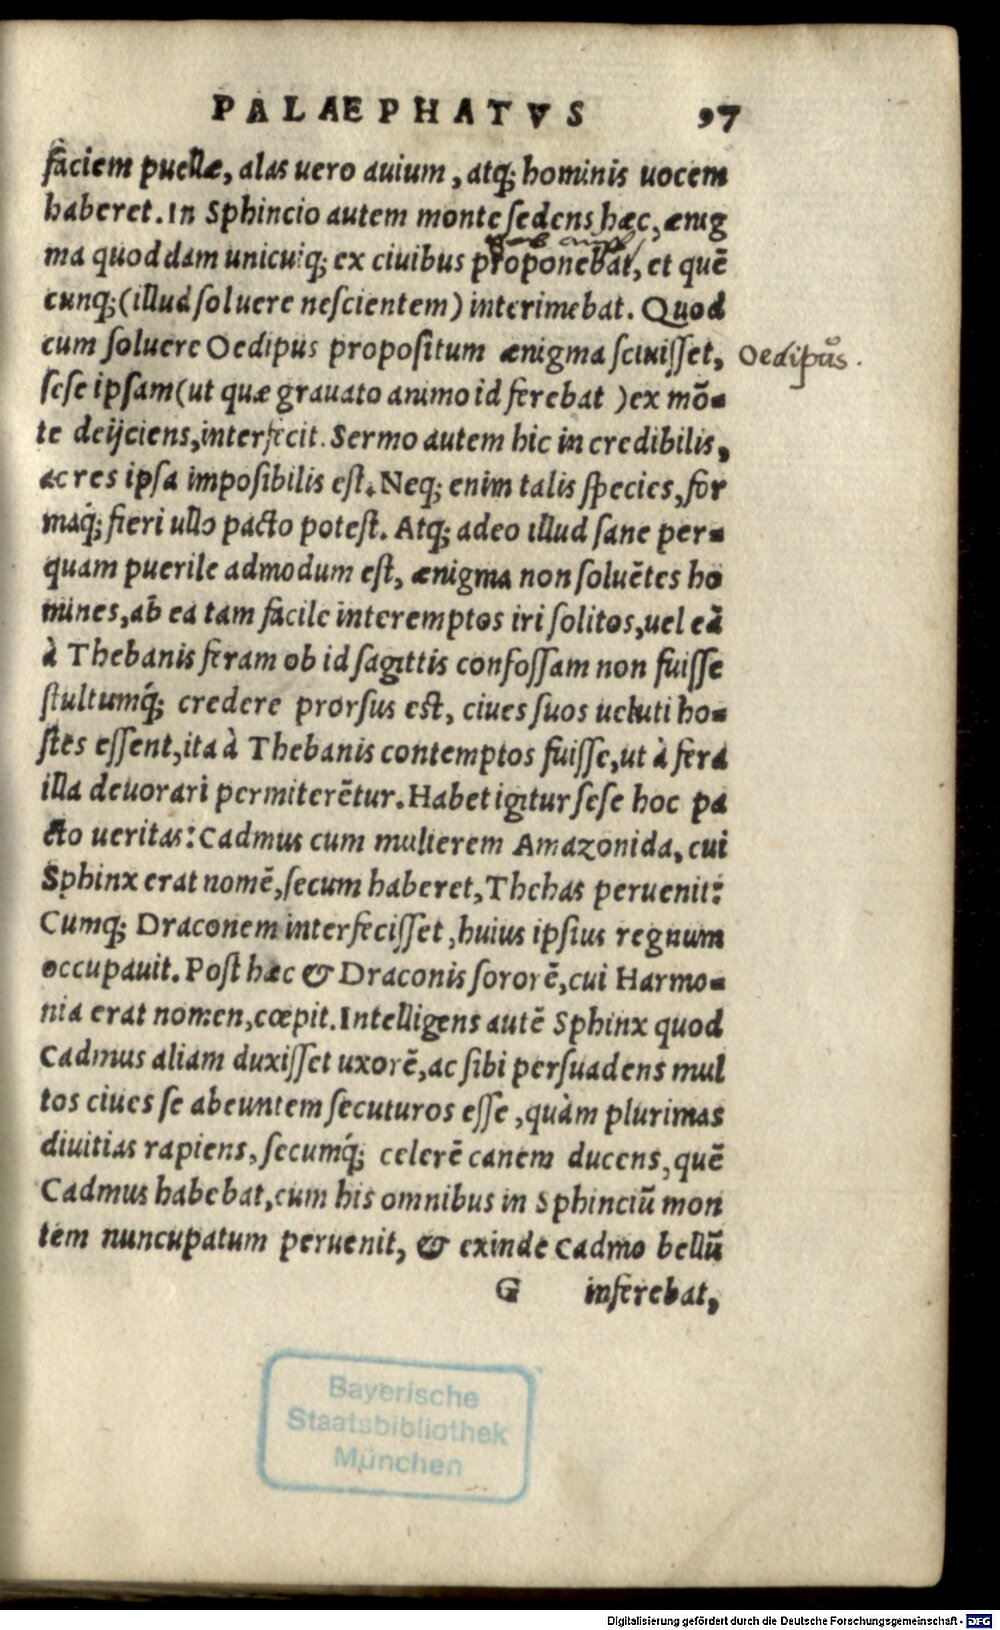 PALAEPHATVS 97
faciem puellæ, alas uero auium, atq; hominis uocem
haberet. In Sphincio autem monte sedens hæc, ænig
ma quoddam unicuiq; ex ciuibus proponebat, et quē
cunq; (illud soluere nescientem) interimebat. Quod
cum soluere Oedipus propositum ænigma sciuisset,
Oedipus.
sese ipsam (ut quæ grauato animo id ferebat) ex mō-
te deijciens, interfecit. Sermo autem hic incredibilis,
ac res ipsa imposibilis est. Neq; enim talis species, for
maq́; fieri ullo pacto potest. Atq; adeo illud sane per-
quam puerile admodum est, ænigma non soluētes ho
mines, ab ea tam facile interemptos iri solitos, uel eā
à Thebanis feram ob id sagittis confossam non fuisse
stultumq́; credere prorsus est, ciues suos ueluti ho-
stes essent, ita à Thebanis contemptos fuisse, ut à fera
illa deuorari permiterētur. Habet igitur sese hoc pa
cto ueritas: Cadmus cum mulierem Amazonida, cui
Sphinx erat nomē, secum haberet, Thebas peruenit:
Cumq; Draconem interfecisset, huius ipsius regnum
occupauit. Post hæc & Draconis sororē, cui Harmo-
nia erat nomen, cœpit. Intelligens autē Sphinx quod
Cadmus aliam duxisset uxorē, ac sibi persuadens mul
tos ciues se abeuntem secuturos esse, quàm plurimas
diuitias rapiens, secumq́; celerē canem ducens, quē
Cadmus habebat, cum his omnibus in Sphinciū mon
tem nuncupatum peruenit, & exinde Cadmo bellū
G inferebat,
Bayerische
Staatsbibliothek
München
Digitalisierung gefördert durch die Deutsche Forschungsgemeinschaft - DFG